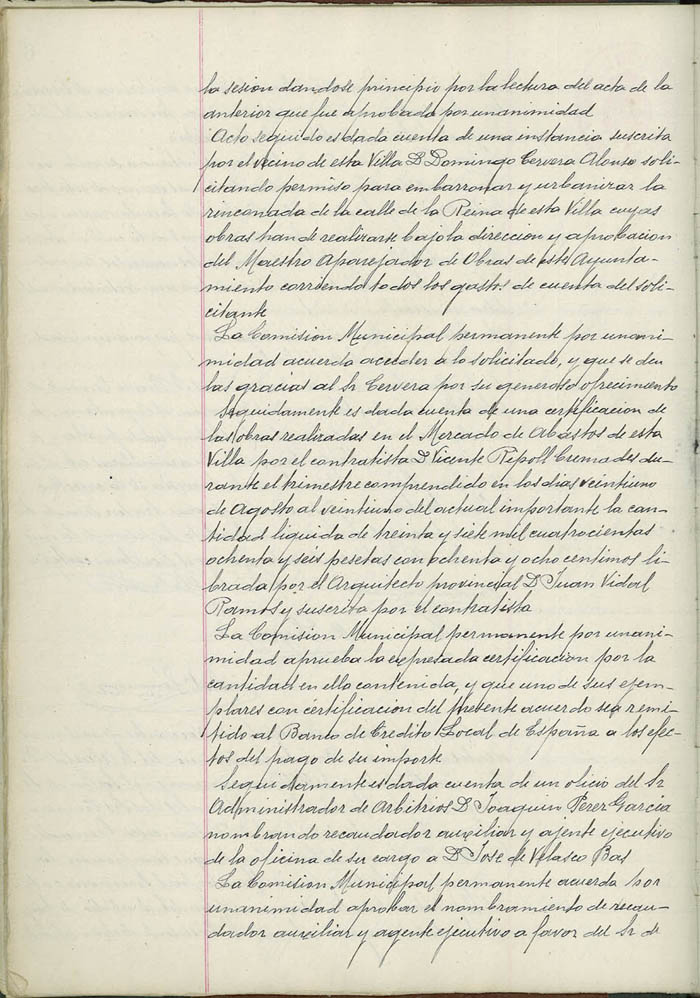 la sesion dandose principio por la lectura del acta de la
anterior que fue aprobada por unanimidad
Acto seguido es dada cuenta de una instancia suscrita
por el vecino de esta Villa D. Domingo Cervera Alonso soli-
citando permiso para embarronar y urbanizar la
rinconada de la calle de la Reina de esta Villa cuyas
obras han de realizarse bajo la direccion y aprobacion
del Maestro Aparejador de Obras de este Ayunta-
miento corriendo todos los gastos de cuenta del soli-
citante
La Comision Municipal permanente por unani-
midad acuerda acceder a lo solicitado, y que se den
las gracias al Sr Cervera por su generoso ofrecimiento
Seguidamente es dada cuenta de una certificacion de
las obras realizadas en el Mercado de Abastos de esta
Villa por el contratista D Vicente Ripoll Cremades du-
rante el trimestre comprendido en los dias veintiuno
de Agosto al veintiuno del actual importante la can-
tidad liquida de treinta y siete mil cuatrocientas
ochenta y seis pesetas con ochenta y ocho centimos li-
brada por el Arquitecto provincial D Juan Vidal
Ramos y suscrita por el contratista
La Comision Municipal permanente por unani-
midad aprueba la expresada certificacion por la
cantidad en ella contenida, y que uno de sus ejem-
plares con certificacion del presente acuerdo sea remi-
tido al Banco de Credito Local de España a los efec-
tos del pago de su importe
Seguidamente es dada cuenta de un oficio del Sr
Administrador de Arbitrios D Joaquin Perez Garcia
nombrando recaudador auxiliar y ajente ejecutivo
de la oficina de su cargo a D Jose de Velasco Bas
La Comision Municipal permanente acuerda por
unanimidad aprobar el nombramiento de recau-
dador auxiliar y agente ejecutivo a favor del Sr de